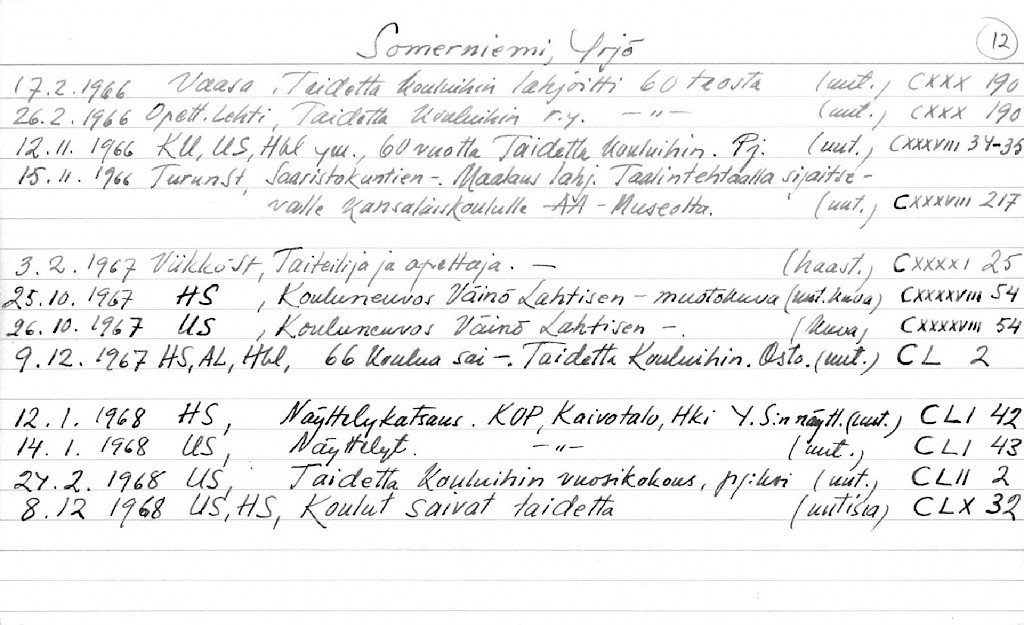 Somerniemi, Yrjö
12
17.2.1966 Vaasa, Taidetta Kouluihin lahjoitti 60 teosta (uut.) CXXX 190
26.2.1966 Opett.Lehti, Taidetta Kouluihin r.y. —"— (uut.) CXXX 190
12.11.1966 KU, US, Hbl ym., 60 vuotta Taidetta Kouluihin. Pj. (uut.) CXXXVIII 34-35
15.11.1966 TurunSt, Saaristokuntien -. Maalaus lahj. Taalintehtaalla sijaitse-
valle Kansalaiskoululle - AA - Museotta. (uut.) CXXXVIII 217
3.2.1967 ViikkoSt, Taiteilija ja opettaja. — (haast.) CXXXXI 25
25.10.1967 HS, Kouluneuvos Väinö Lahtisen - muotokuva (uut. kuva) CXXXXVIII 54
26.10.1967 US, Kouluneuvos Väinö Lahtisen -. (kuva) CXXXXVIII 54
9.12.1967 HS, AL, Hbl, 66 Koulua sai -. Taidetta Kouluihin. Osto. (uut.) CL 2
12.1.1968 HS, Näyttelykatsaus. KOP, Kaivotalo, Hki Y.S:n näytt. (uut.) CLI 42
14.1.1968 US, Näyttelyt. —"— (uut.) CLI 43
27.2.1968 US, Taidetta Kouluihin vuosikokous, pj:ksi (uut.) CLII 2
8.12 1968 US, HS, Koulut saivat taidetta (uutisia) CLX 32